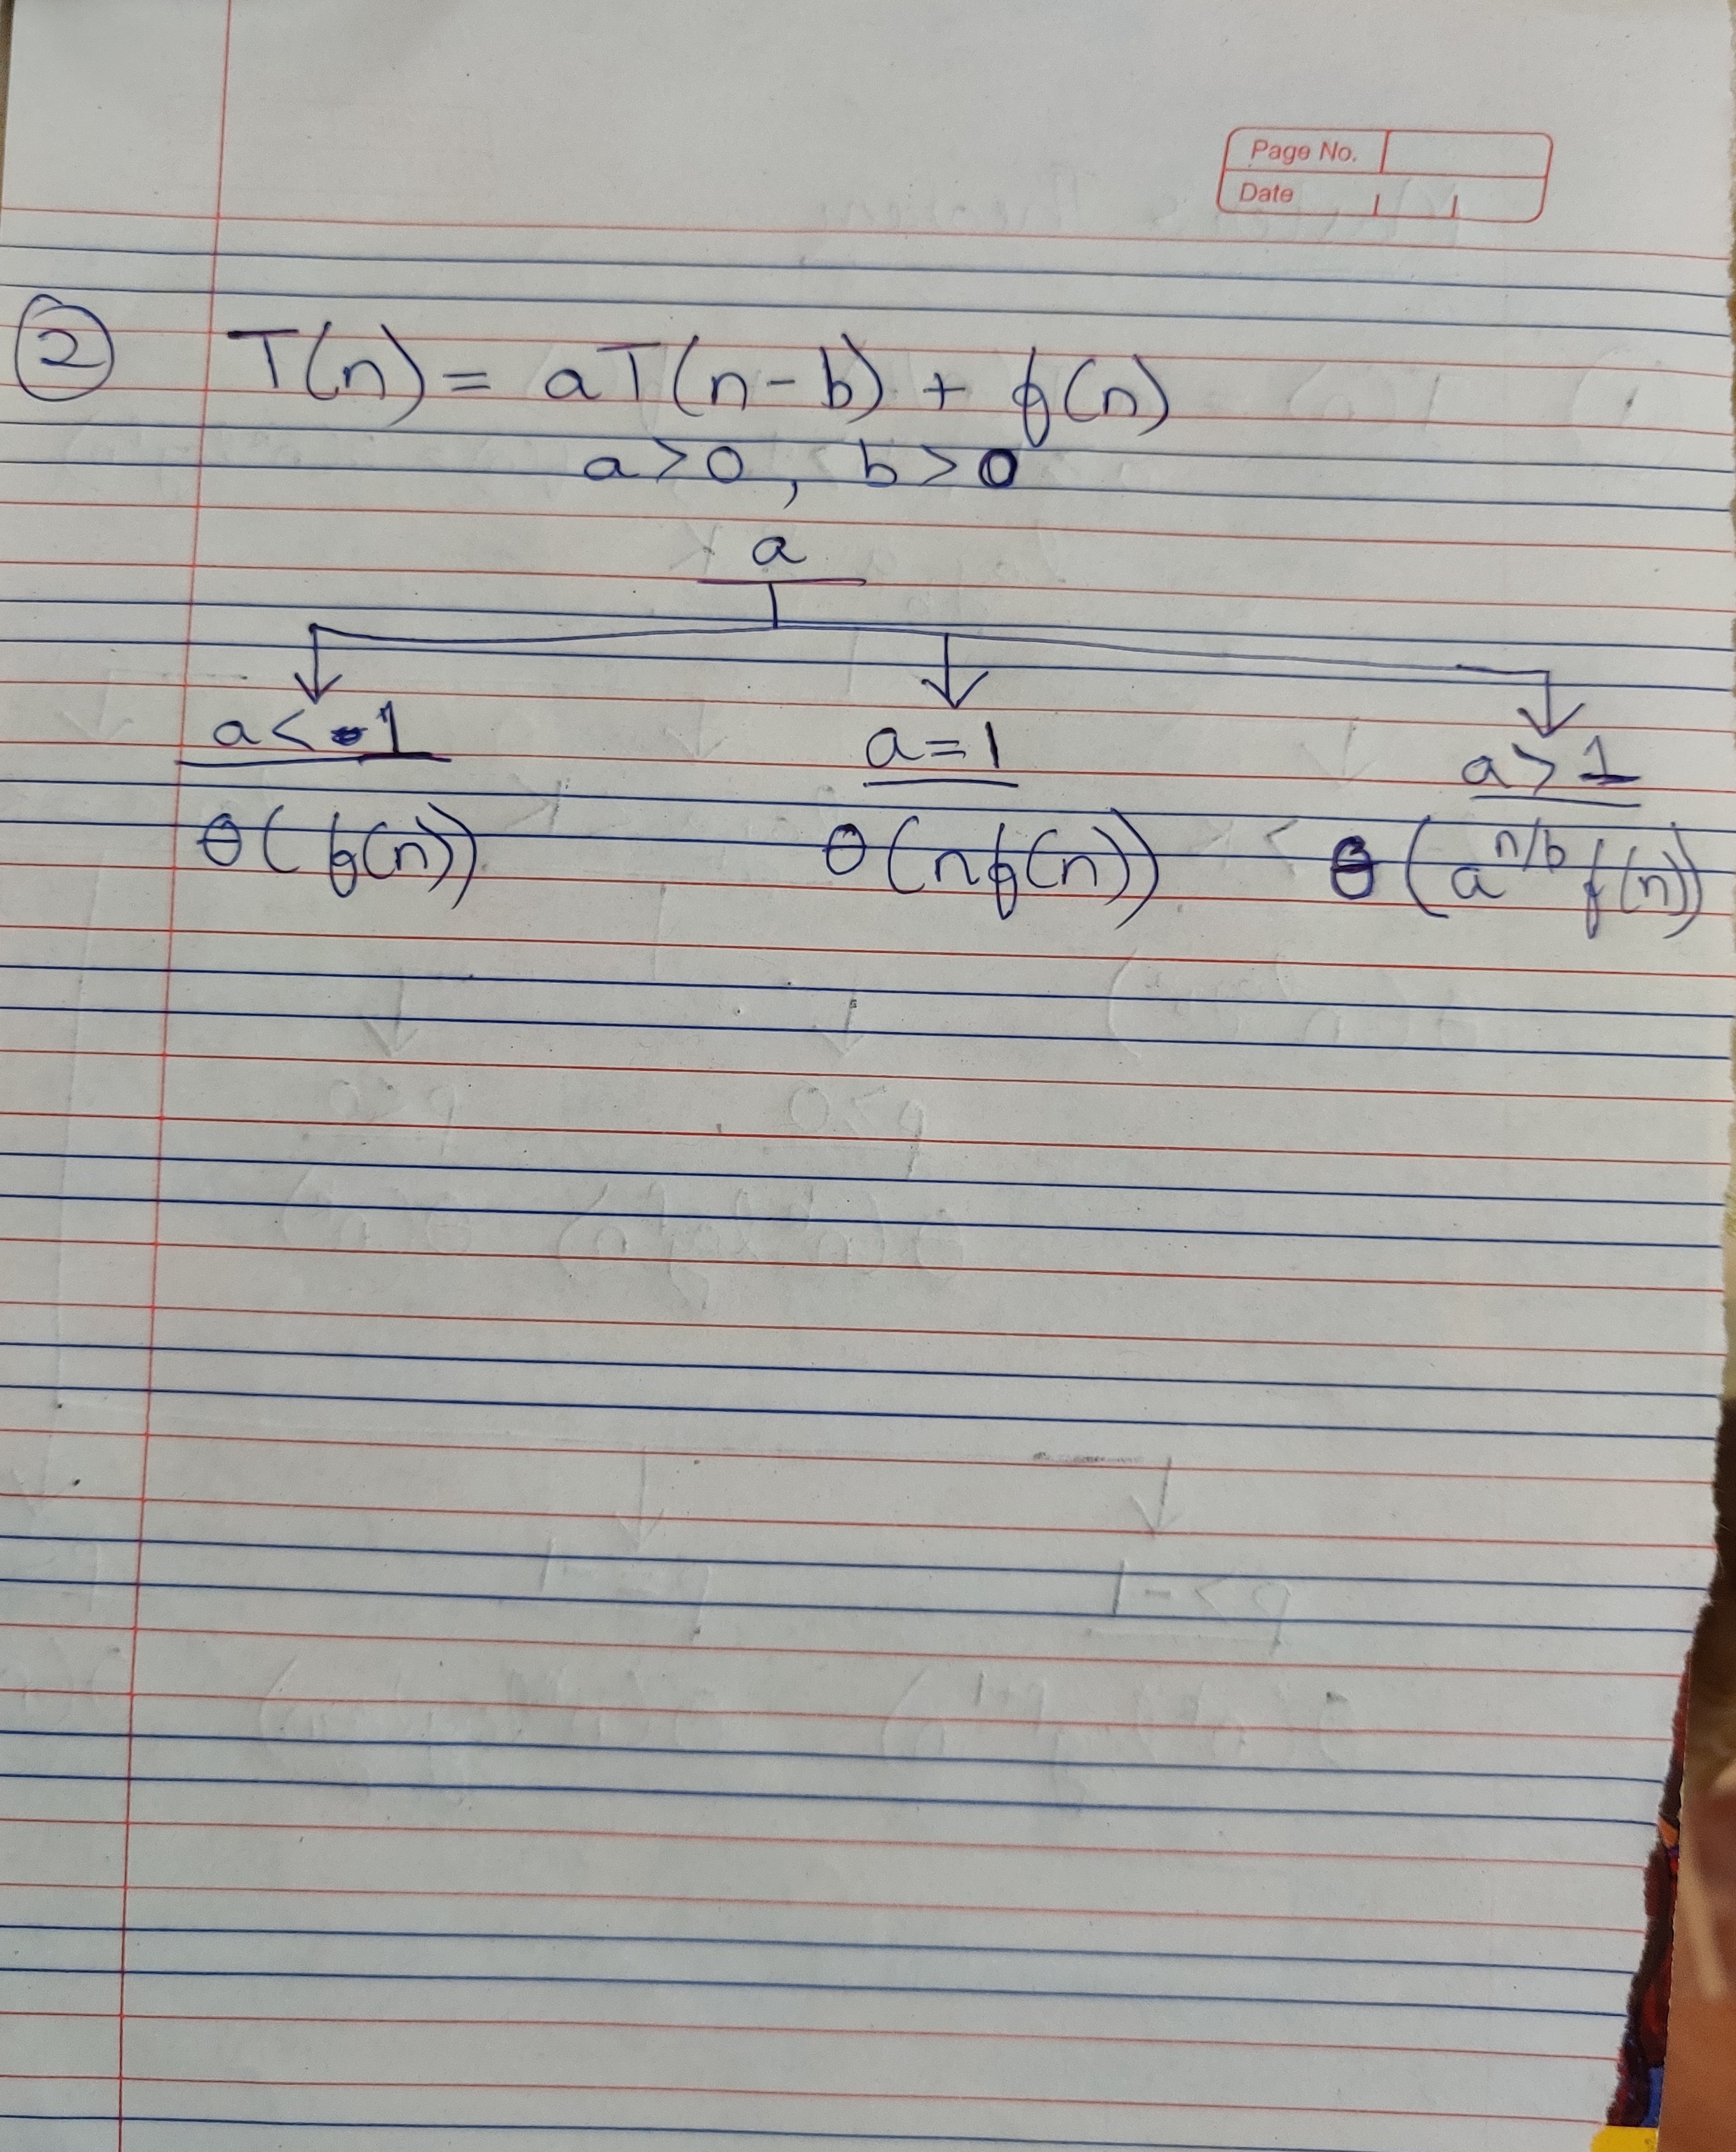 Page No.
Date
② T(n) = aT(n-b) + f(n)
a>0, b>0
a
a<1 a=1 a>1
θ(f(n)) θ(nf(n)) θ(a^{n/b} f(n))